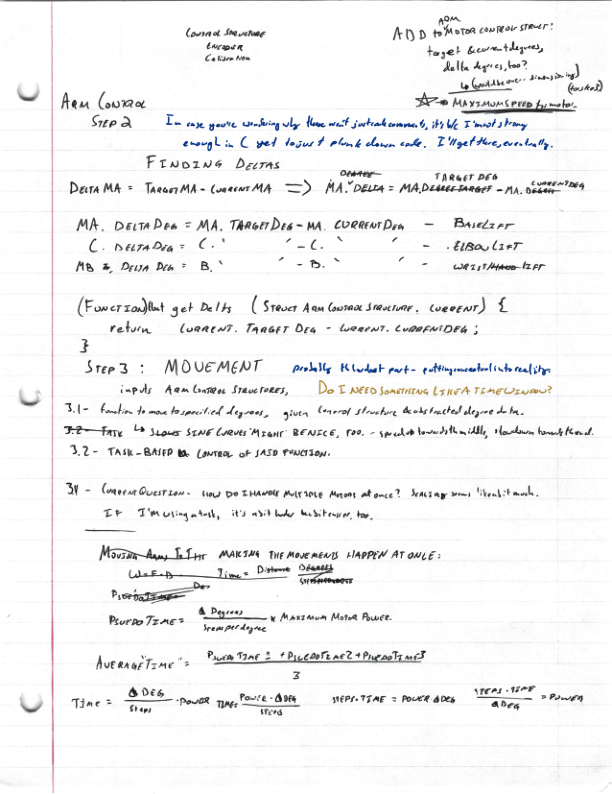 CONTROL STRUCTURE
ENCODER
Calibration
ADD to ARM MOTOR CONTROL STRUCT:
target & current degrees,
delta degrees, too?
MAXIMUM SPEED for motor.
ARM CONTROL
STEP 2
In case you're wondering why these aren't just code comments, it's b/c I'm not strong
enough in C yet to just plunk down code. I'll get there, eventually.
FINDING DELTAS
DELTA MA = TARGET MA - CURRENT MA => MA. DELTA = MA. TARGET DEG - MA. CURRENT DEG
MA. DELTA DEG = MA. TARGET DEG - MA. CURRENT DEG - BASE LIFT
C. DELTA DEG = C. " - C. " - ELBOW LIFT
MB DELTA DEG = B. " - B. " - WRIST LIFT
(FUNCTION) float get Delts (STRUCT ARM CONTROL STRUCTURE. CURRENT) {
return CURRENT. TARGET DEG - CURRENT. CURRENT DEG;
}
STEP 3: MOVEMENT probably the hardest part - putting our control into reality.
inputs ARM CONTROL STRUCTURES, DO I NEED SOMETHING LIKE A TIME WINDOW?
3.1 - function to move to specified degrees, given control structure & abstracted degree data.
3.2 - TASK SLOWS SINE CURVES MIGHT BE NICE, TOO. - speed up towards the middle, slow down towards the end.
3.2 - TASK-BASED CONTROL OF SAID FUNCTION.
3.1 - CURRENT QUESTION - HOW DO I HANDLE MULTIPLE MOTORS at once? Scaling seems like a bit much.
IF I'M using a task, it's a bit harder, too.
MOVING ARMS TO THE MAKING THE MOVEMENTS HAPPEN AT ONCE:
W=F·D Time = Distance DEGREES
PSUEDOTIME =
PSUEDO TIME = Δ Degrees / Steps per degree × MAXIMUM MOTOR POWER.
AVERAGE "TIME" = PSUEDO TIME 1 + PSUEDO TIME 2 + PSUEDO TIME 3 / 3
TIME = Δ DEG / Steps · POWER TIME = POWER · Δ DEG / STEPS STEPS · TIME = POWER · Δ DEG STEPS · TIME / Δ DEG = POWER